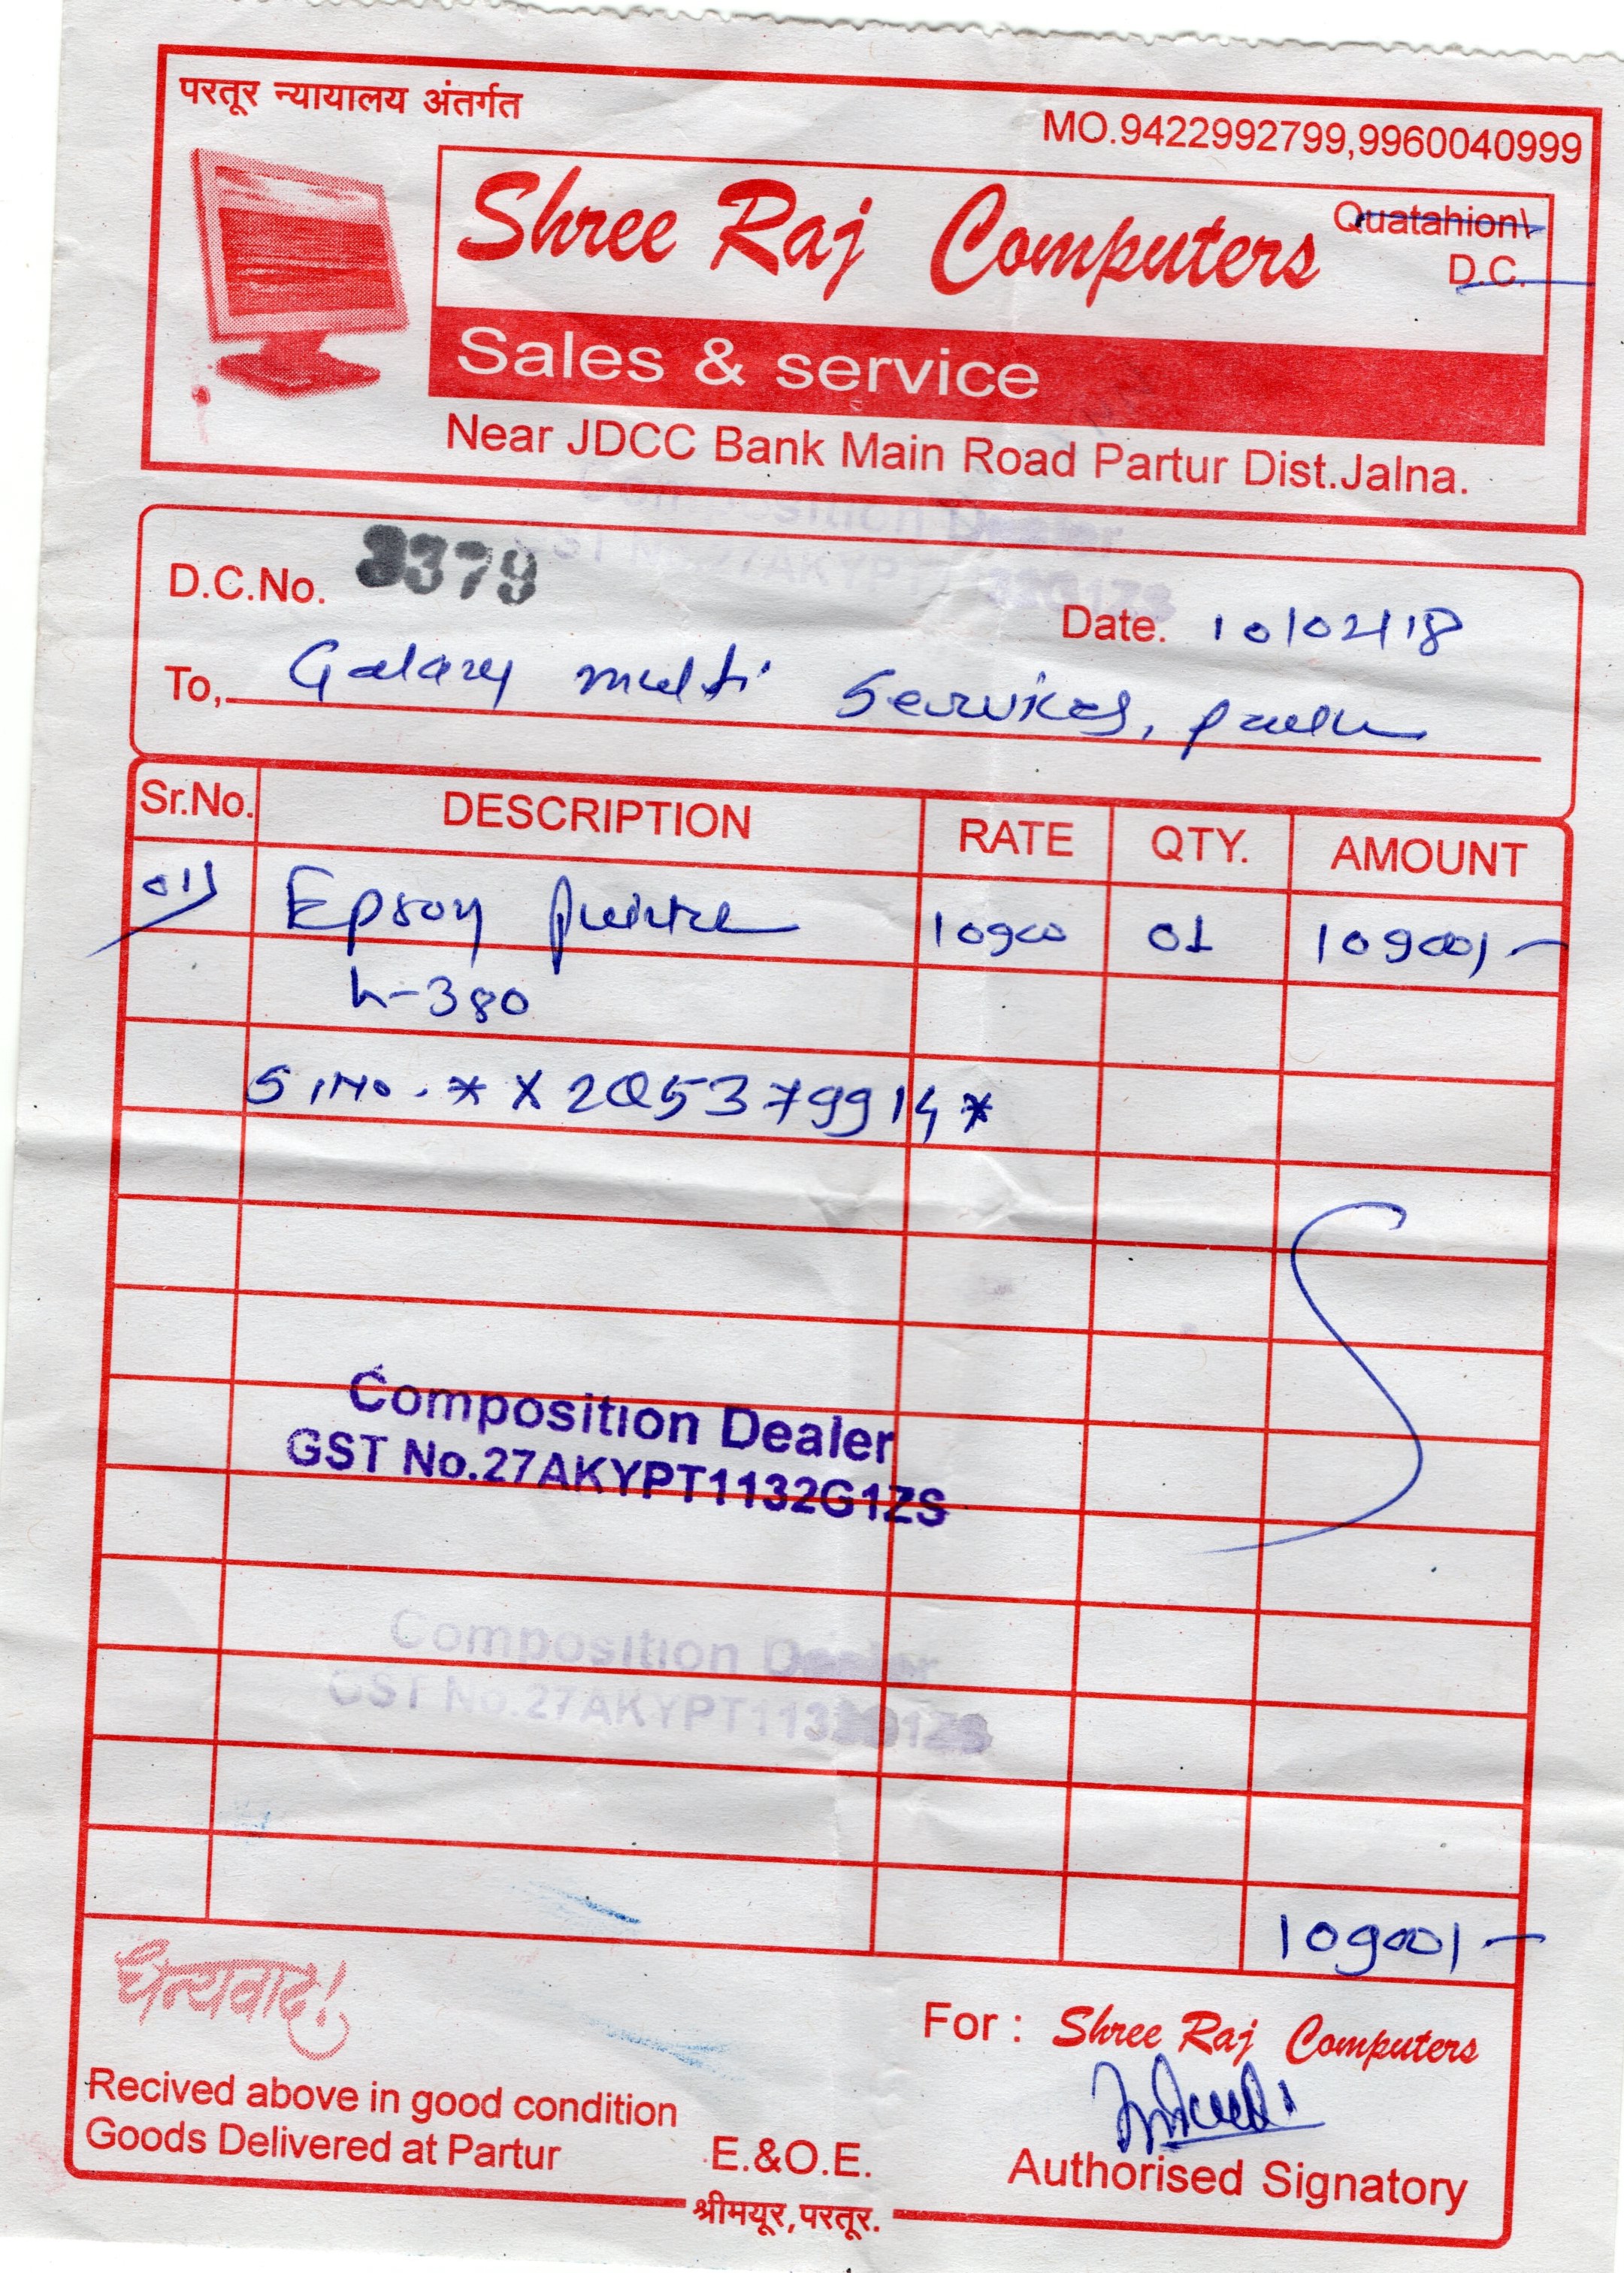 परतूर न्यायालय अंतर्गत
MO.9422992799,9960040999
Shree Raj Computers
Quatahion\
D.C.
Sales & service
Near JDCC Bank Main Road Partur Dist.Jalna.
Composition Dealer
D.C.No. 3379
Date. 10/02/18
To, Galaxy multi Services,
Sr.No. DESCRIPTION RATE QTY. AMOUNT
01) Epson Printer 10900 01 10900/-
L-380
S.No. * X2Q5379914*
Composition Dealer
GST No.27AKYPT1132G1ZS
Composition Dealer
GST No.27AKYPT1132G1ZS
10900/-
धन्यवाद!
For : Shree Raj Computers
Recived above in good condition
Goods Delivered at Partur
E.&O.E.
Authorised Signatory
श्रीमयूर,परतूर.